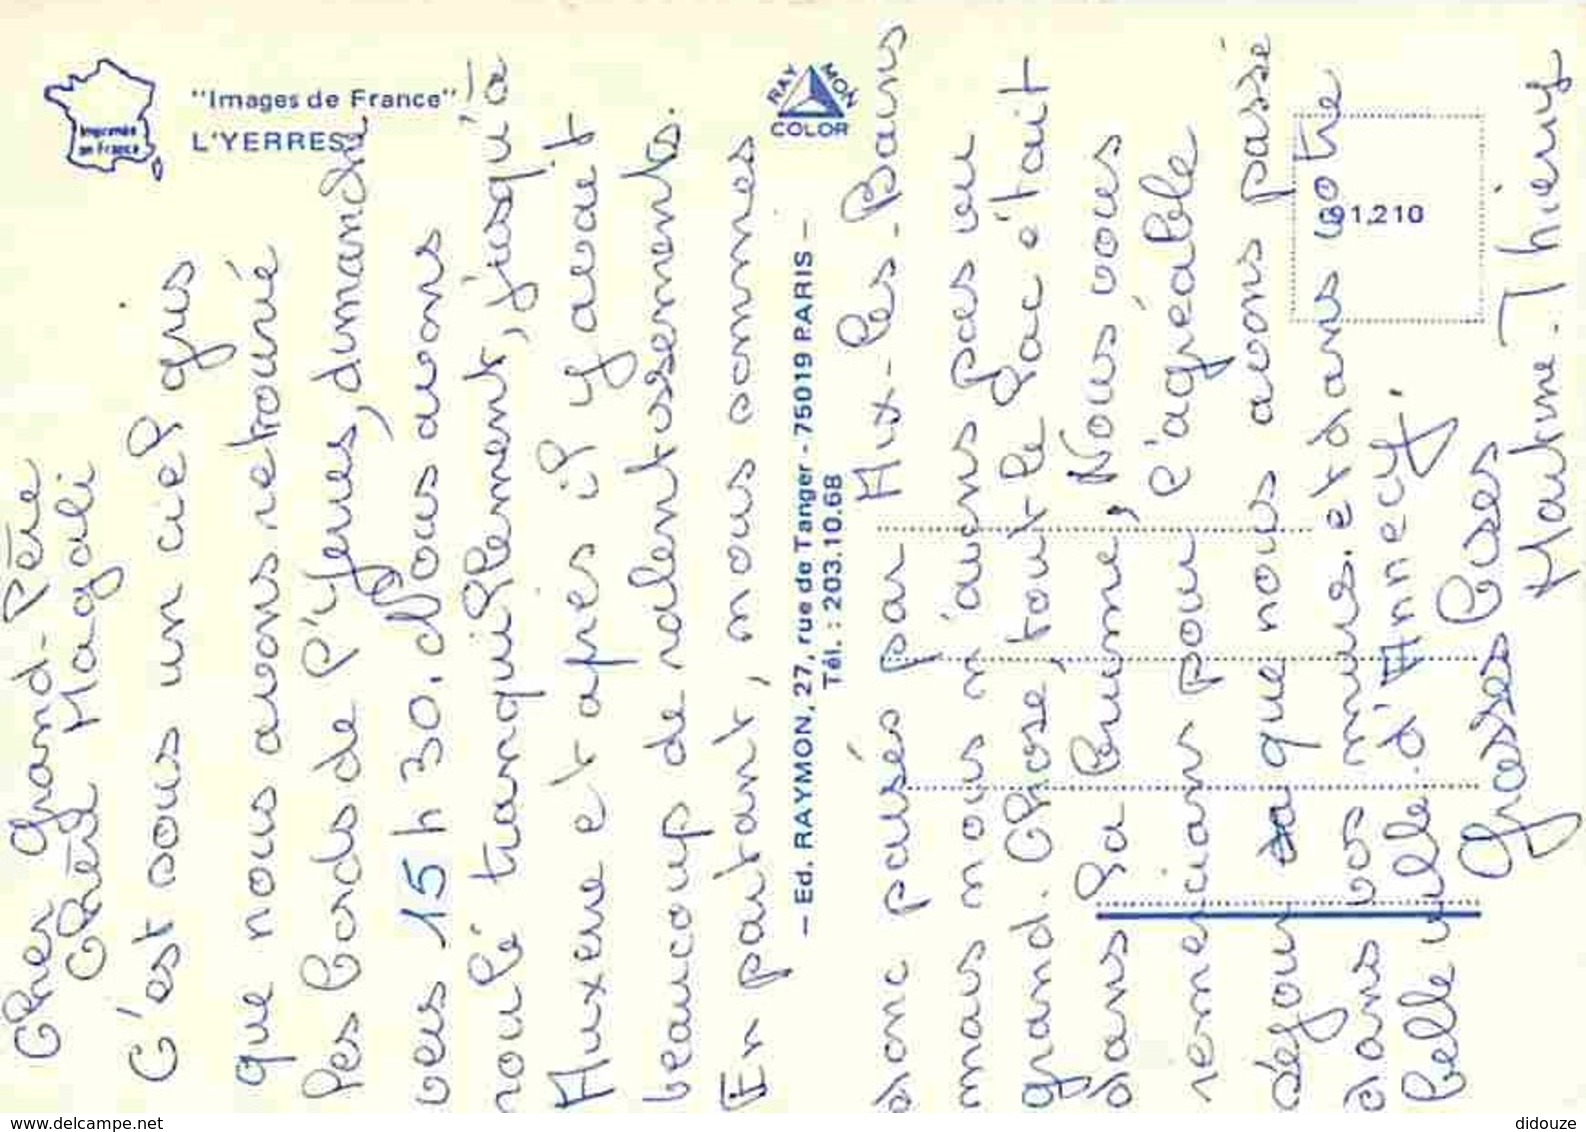 "Images de France"
L'YERRES
Imprimée
en France
RAYMON
COLOR
— Ed. RAYMON, 27, rue de Tanger - 75019 PARIS —
Tél. : 203.10.68
91.210
Cher Grand-Père
Chère Magali
C'est sous un ciel gris
que nous avons retrouvé
les bords de l'Yerres, dimanche
vers 15 h 30. Nous avons
roulé tranquillement, jusqu'à
Auxerre et après il y avait
beaucoup de ralentissements.
En partant, nous sommes
donc passés par Aix-les-Bains
mais nous n'avons pas vu
grand. chose, tout le lac était
dans la brume, Nous vous
remercions pour l'agréable
séjour que nous avons passé
dans vos murs. et dans votre
belle ville d'Annecy.
Grosses bises
Martine-Thierry
www.delcampe.net
didouze